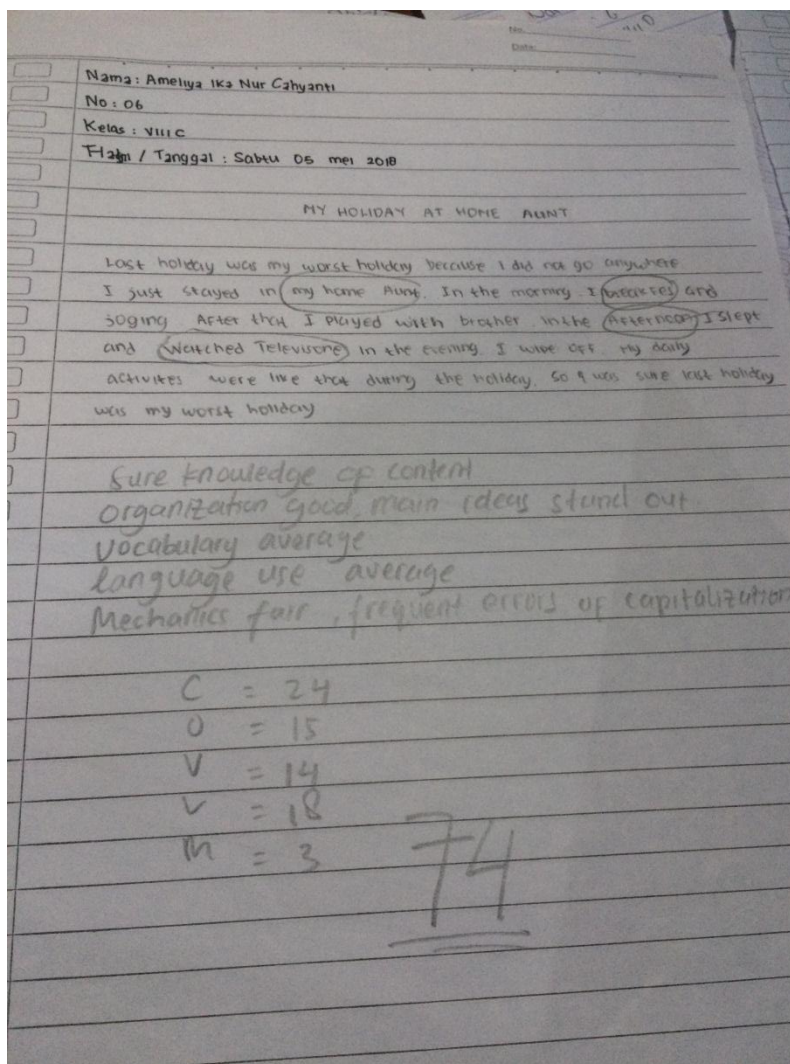 No.
Date:
Nama : Ameliya Ika Nur Cahyanti
No : 06
Kelas : VIII C
/ Tanggal : Sabtu 05 mei 2018
MY HOLIDAY AT HOME AUNT
Last holiday was my worst holiday because I did not go anywhere
I just stayed in my home Aunt. In the morning. I and
joging After that I Played with brother in the Afternoon I slept
and Watched Televisone in the evening. I off. My daily
activites were like that during the holiday. So I was sure last holiday
was my worst holiday
Sure knowledge of content
organization good, main ideas stand out
vocabulary average
language use average
Mechanics fair, frequent errors of capitalization
C = 24
O = 15
V = 14
V = 18
M = 3
74